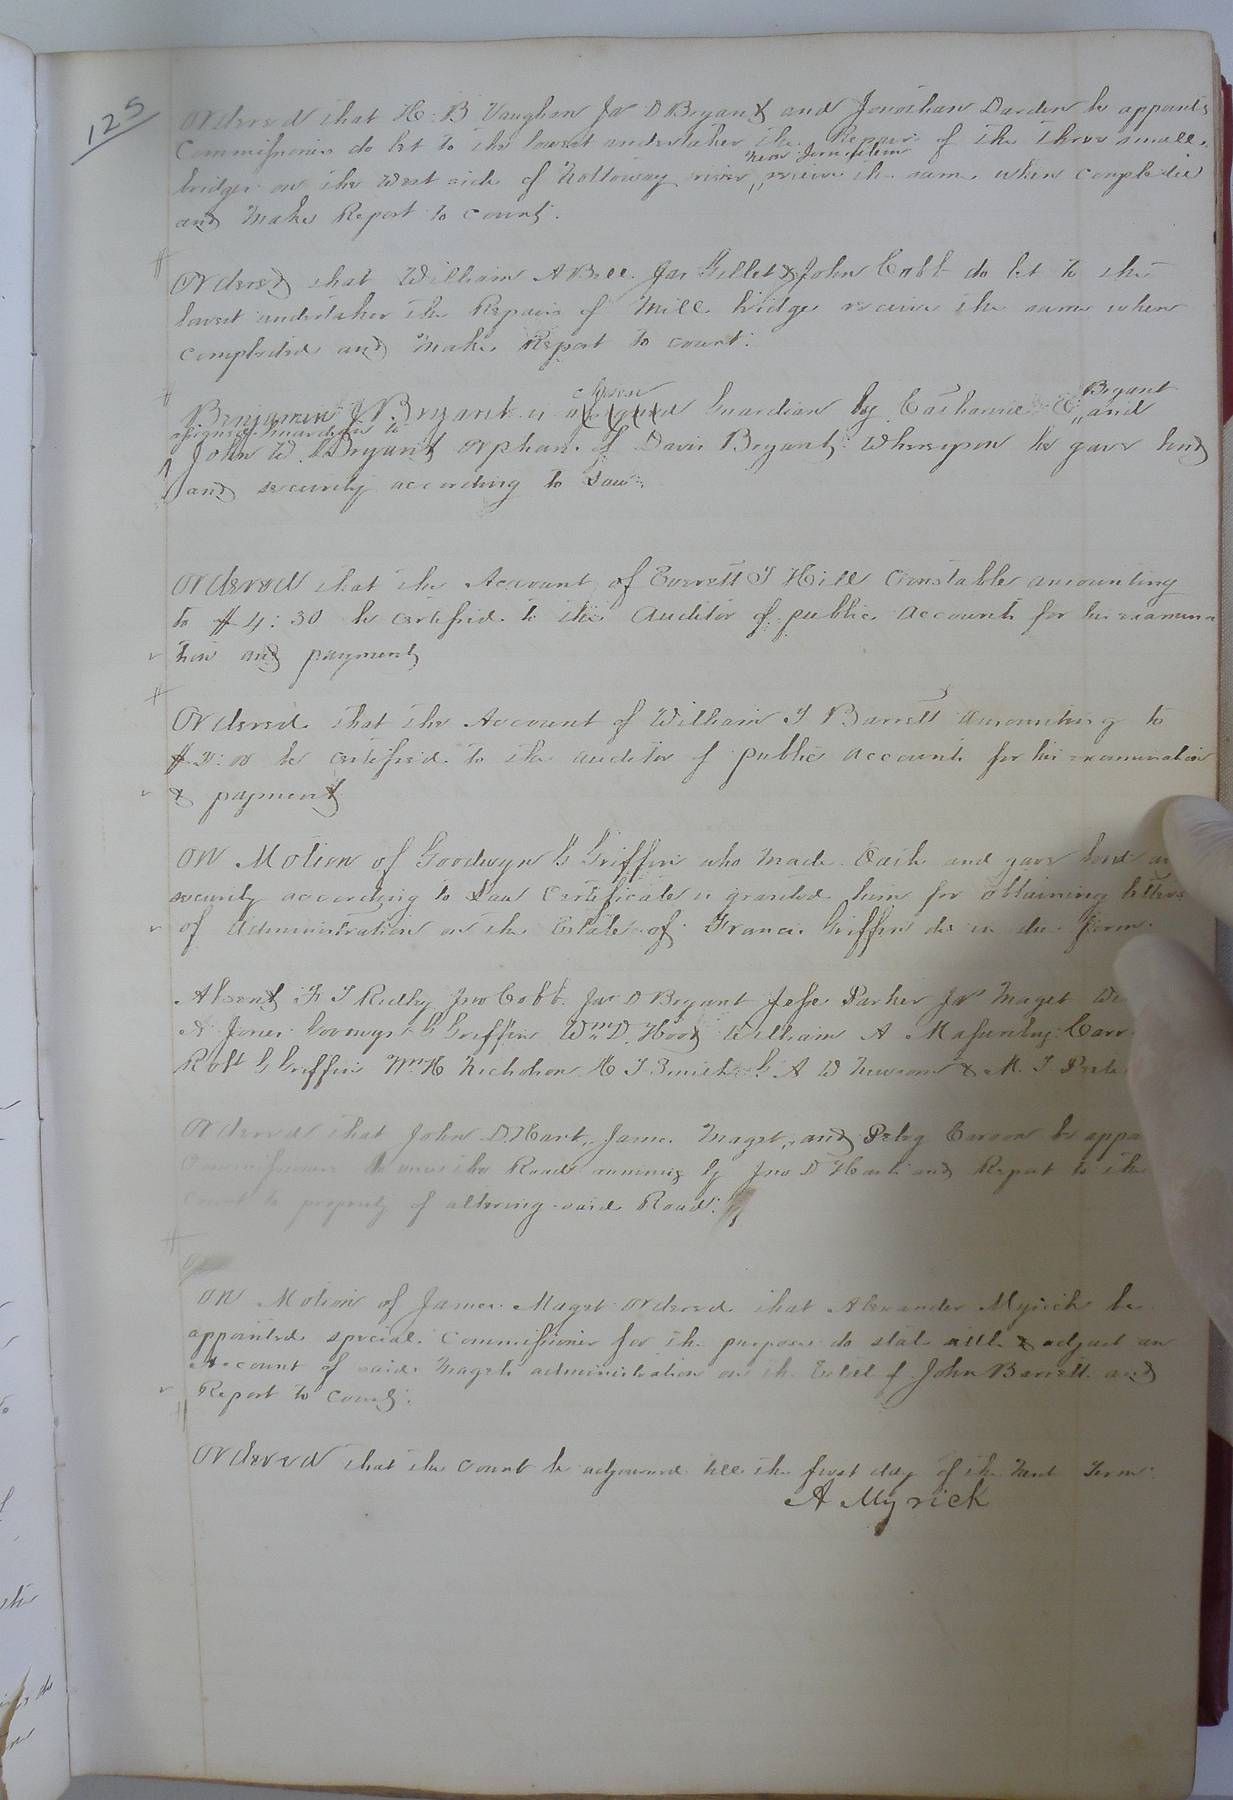 125
Ordered that H. B Vaughan Jas D Bryant and Jonathan Darden be appoints
Commissioners do let to the lowest undertaker the Repair of the three small
near Jerusalem
bridges on the West side of Nottoway river receive the same when completed
and Make Report to court.
Ordered that William A Bell Jas Gillet & John Cobb do let to the
lowest undertaker the Repairs of Mill bridge receive the same when
completed and Make Report to court.
chosen Bryant
Benjamin J Bryant is Guardian by Catharine E and
assigned guardian to
John W. Bryant orphans of Davis Bryant Whereupon he gave bond
and security according to Law.
Ordered that the Account of Everett T Hill Constable amounting
to $ 4:30 be certified to the Auditor of public Accounts for his examina
tion and payment
Ordered that the Account of William T Barrett amounting to
be certified to the auditor of public accounts for his examination
& payment
On Motion of Goodwyn G Griffin who Made Oath and gave bond
security according to Law Certificate is granted him for obtaining letters
of Administration on the Estate of Francis Griffin dec in due form.
Absent Ridley Jno Cobb Jas D Bryant Jesse Parker Jas Maget
A Jones Goodwyn G Griffin Wm D. Hood William A
Robt G Griffin Wm H Nicholson H T Smith G A W Newsom & M. T
Ordered that John D. Hart, James Maget, and Peleg be appo
Commissioners the Road running by Jno D Hart and Report to the
Court the propriety of altering said Road.
On Motion of James Maget ordered that Alexander Myrick be
appointed special Commissioner for the purpose do state settle & adjust an
Account of said Magets administration on the Estate of John Barrett and
Report to Court.
Ordered that the Court be adjourned till the first day of the Next Term
A Myrick